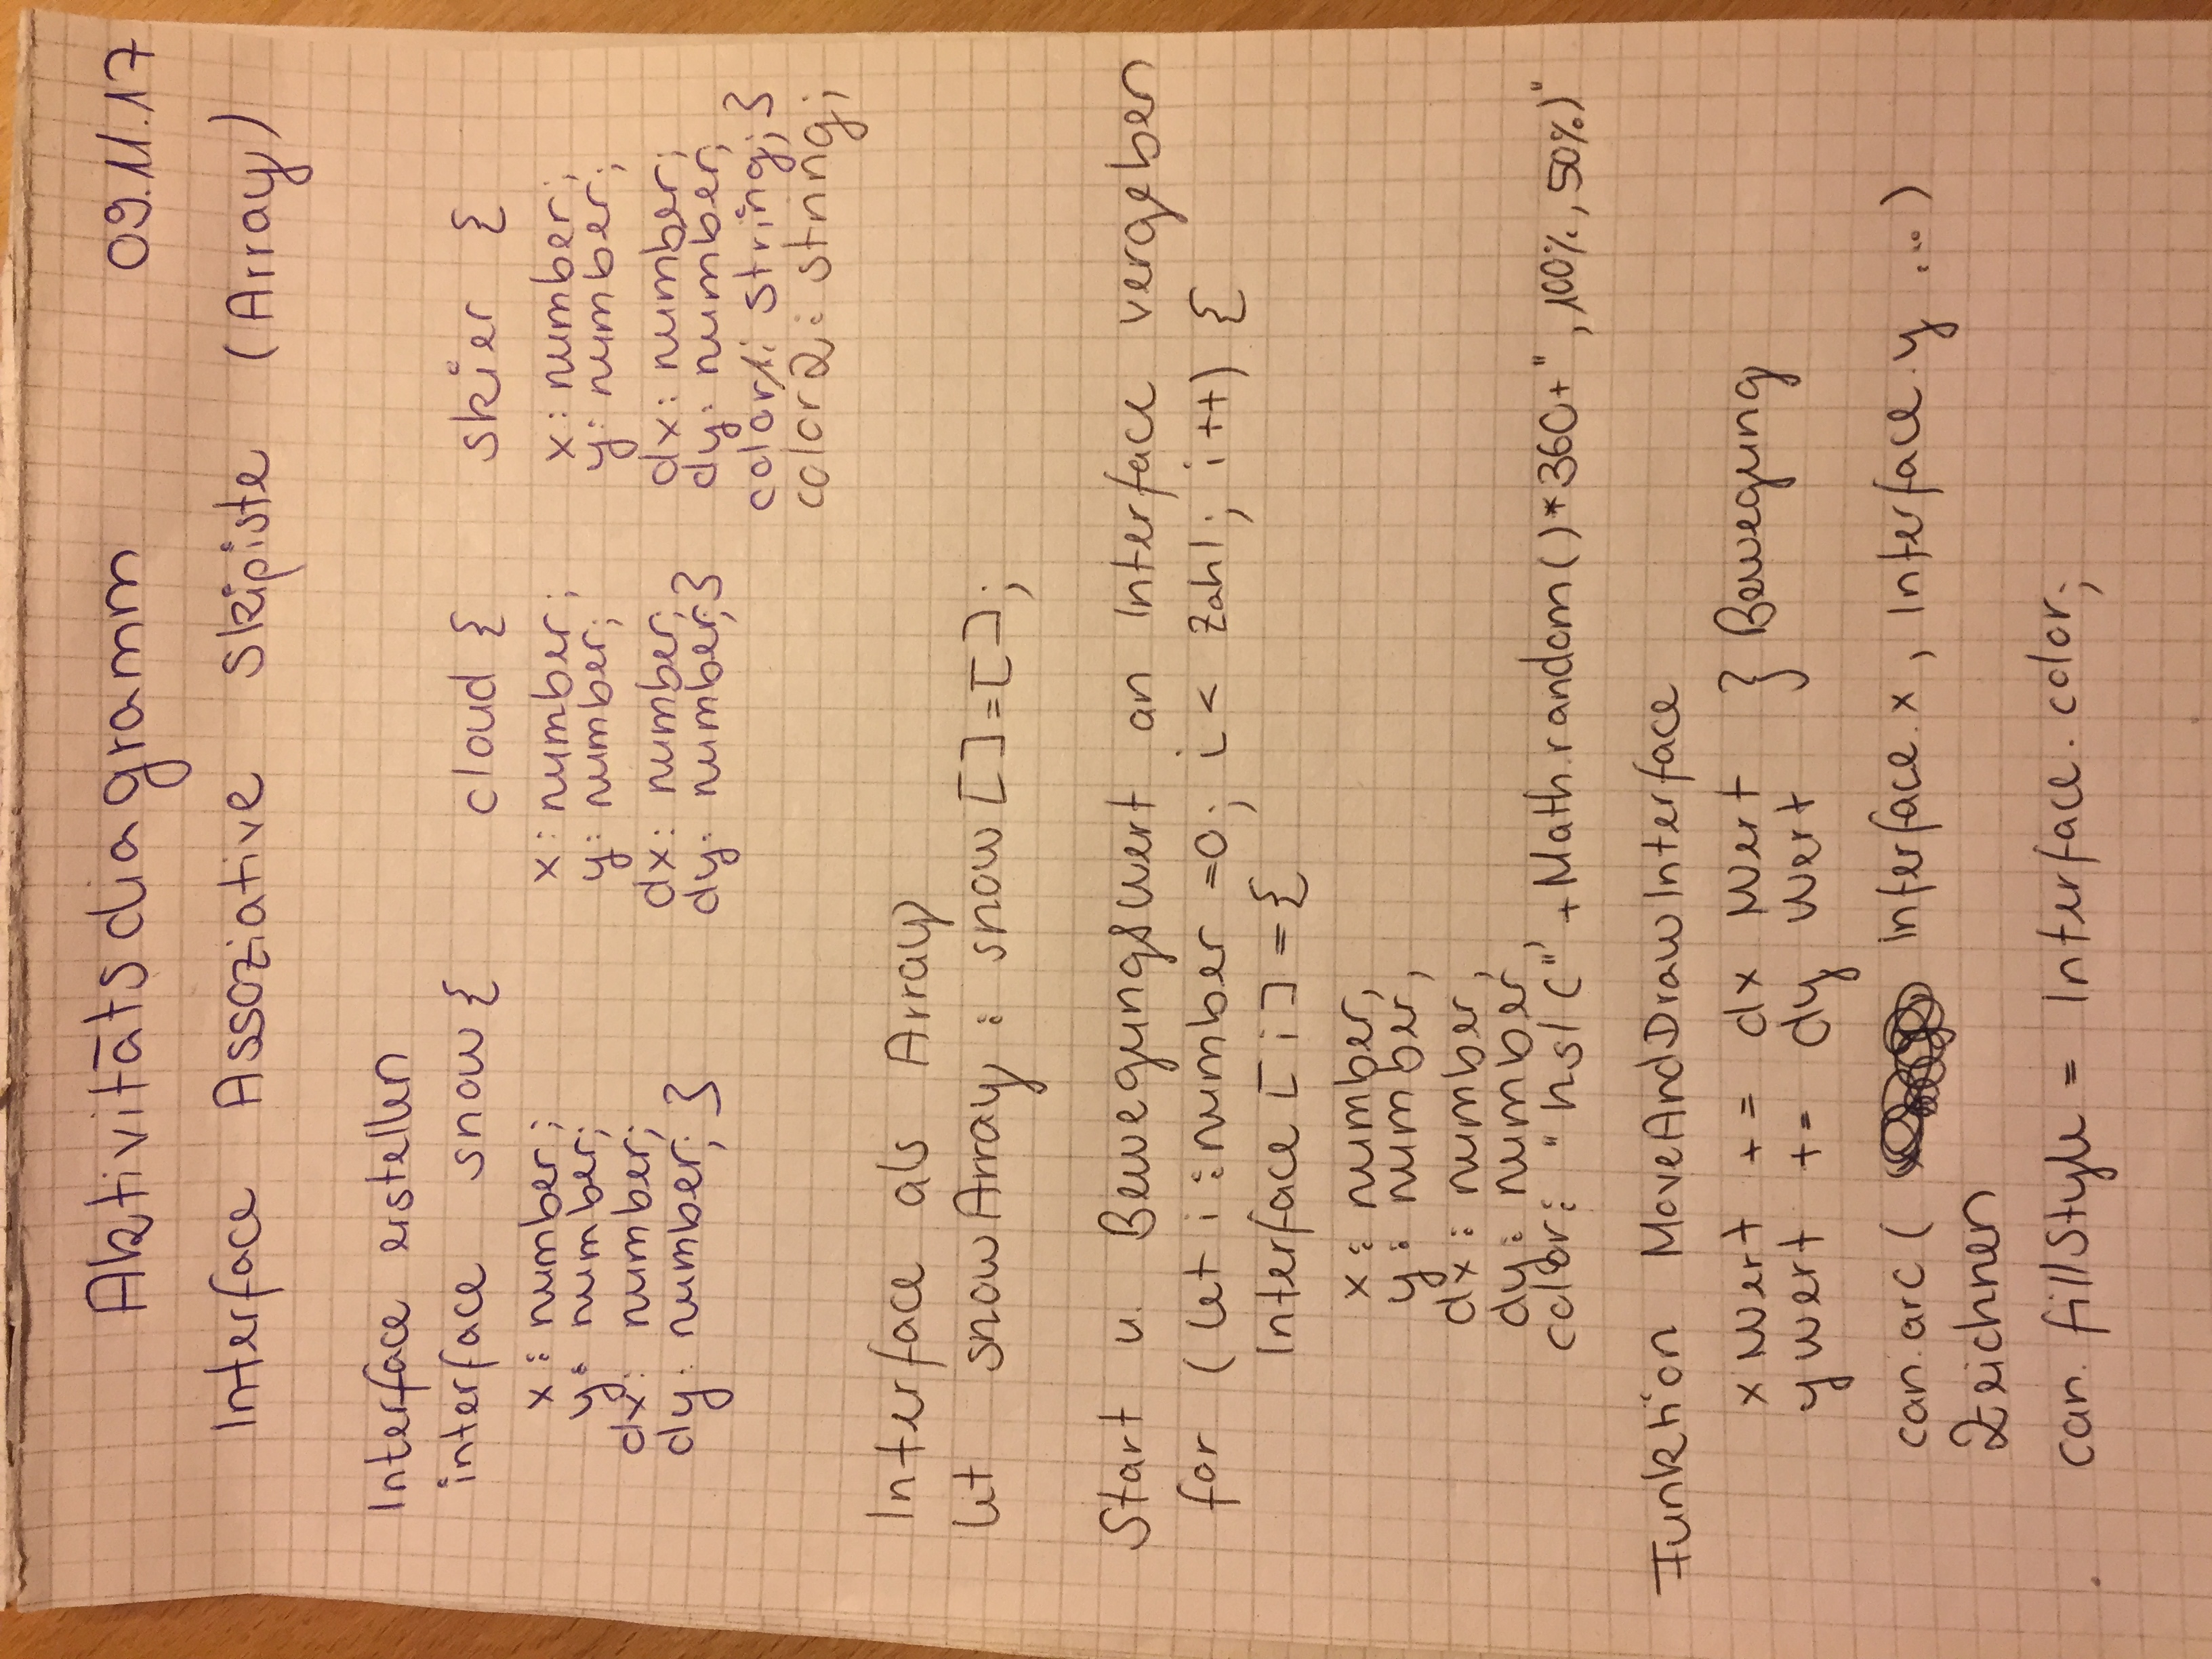 Aktivitätsdiagramm 09.11.17
Interface Assoziative Skipiste (Array)
Interface erstellen
interface snow { cloud { skier {
x : number; x : number; x : number;
y : number; y : number; y : number;
dx : number; dx : number; dx : number;
dy : number; } dy : number; } dy : number;
color1 : string; }
color2 : string;
Interface als Array
let snowArray : snow [] = [];
Start u. Bewegungswert an Interface vergeben
for (let i : number = 0; i < Zahl; i++) {
Interface [i] = {
x : number,
y : number,
dx : number,
dy : number,
color : "hsl(" + Math.random() * 360 + ", 100%, 50%)"
Funktion MoveAndDrawInterface
x Wert += dx Wert } Bewegung
y wert += dy Wert
can.arc ( Interface.x, Interface.y ...)
Zeichnen
can.fillStyle = Interface.color;